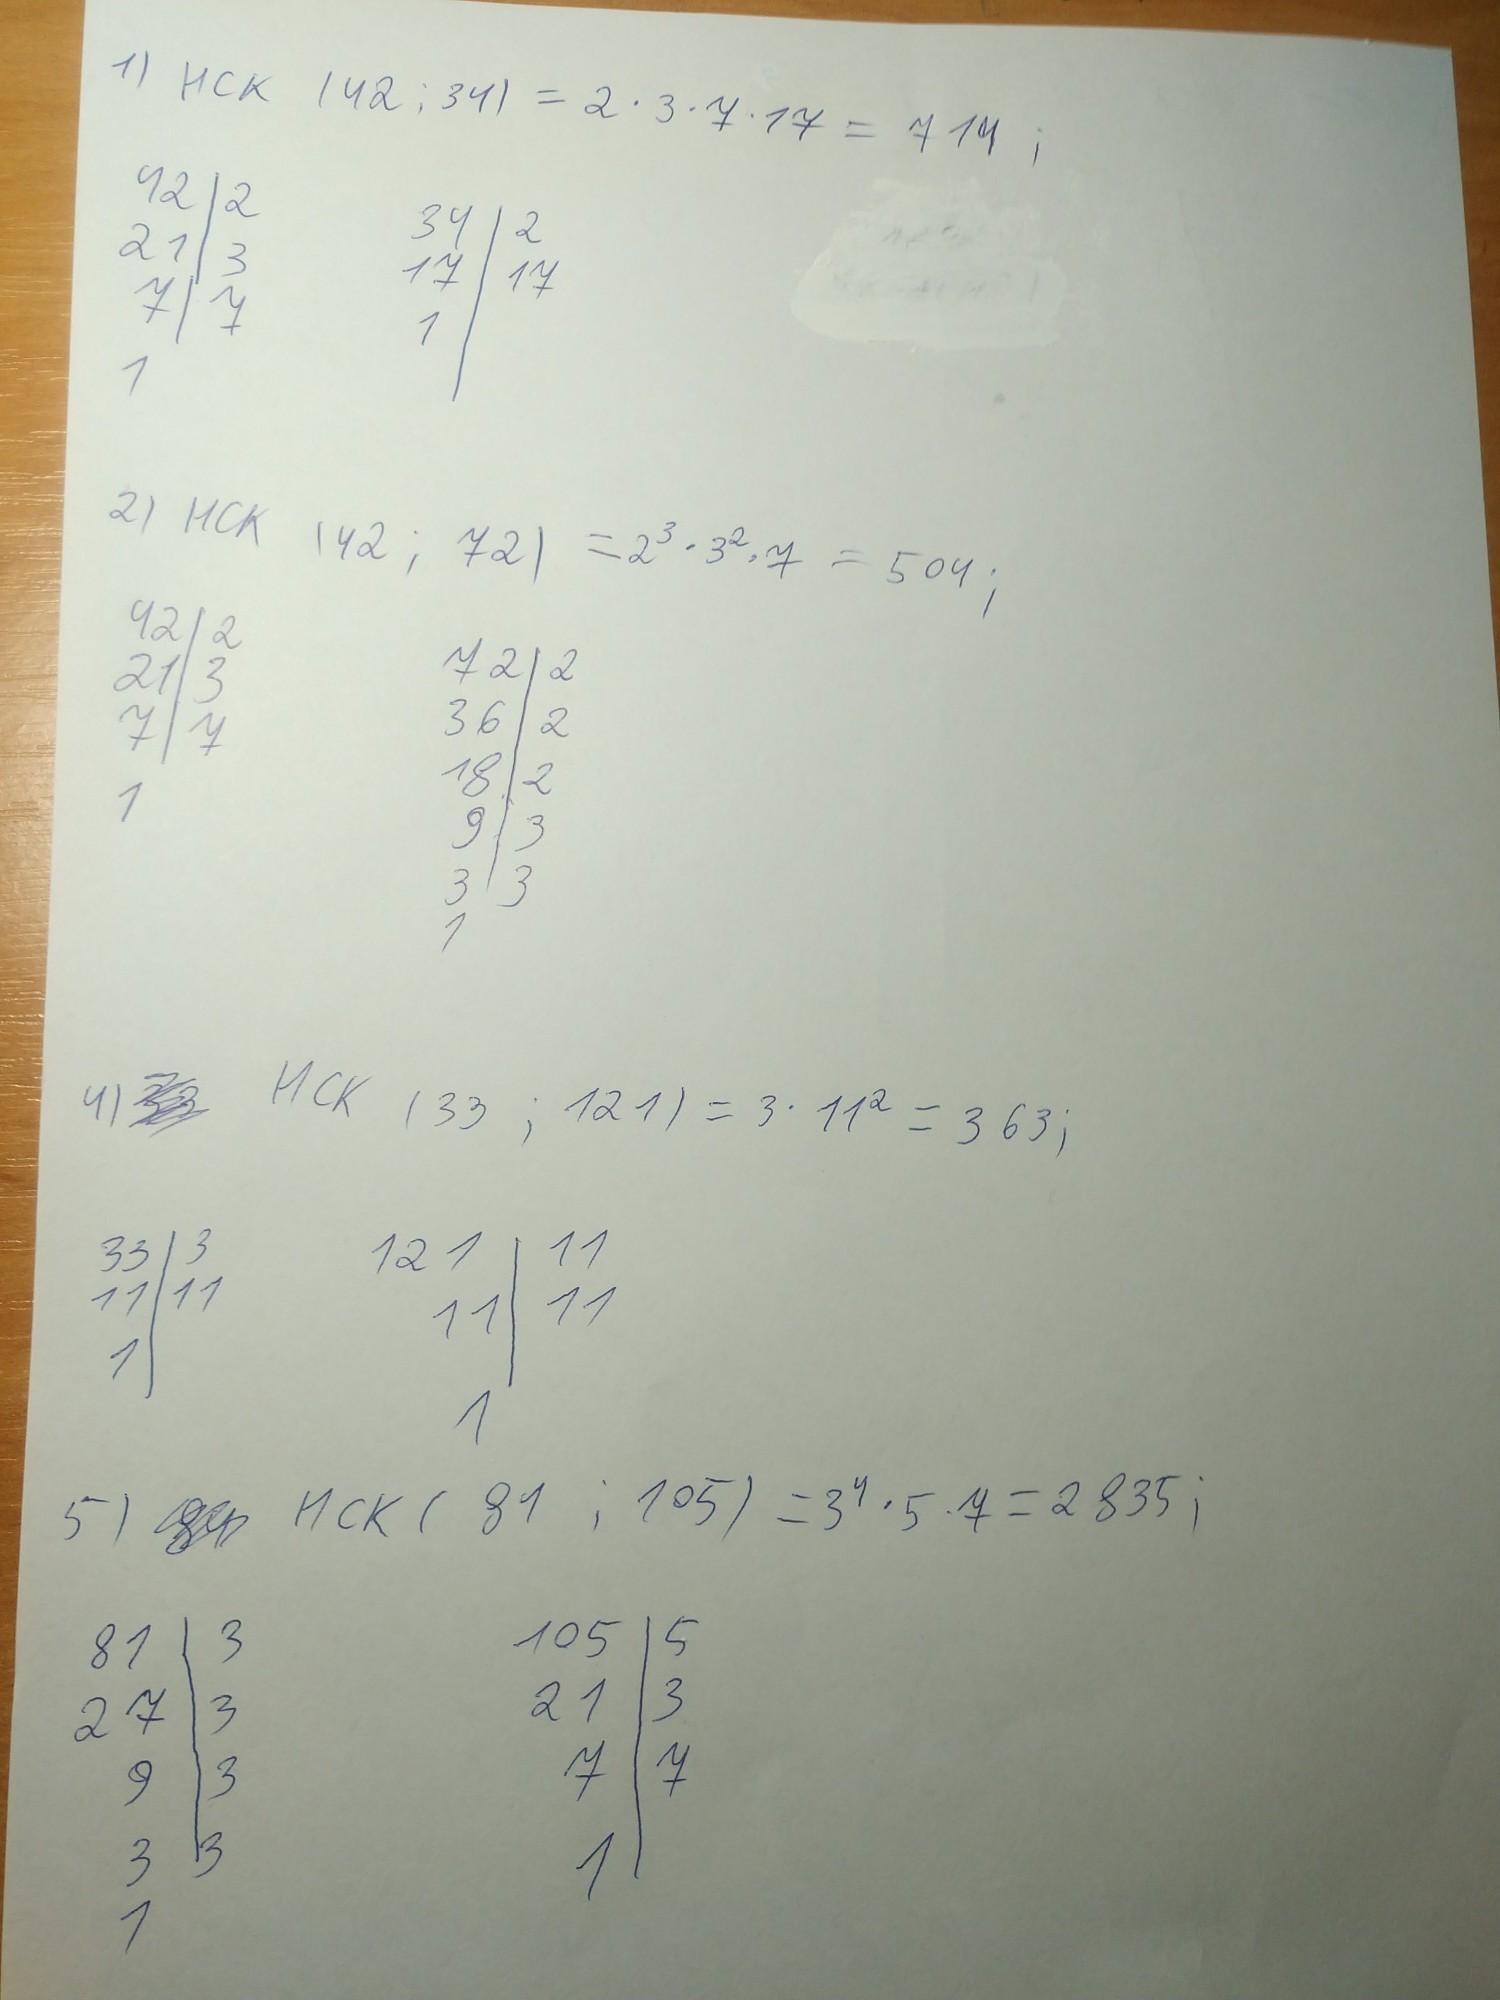 1) НСК (42 ; 34) = 2 · 3 · 7 · 17 = 714 ;
42 | 2
21 | 3
7 | 7
1
34 | 2
17 | 17
1
2) НСК (42 ; 72) = 2³ · 3² · 7 = 504 ;
42 | 2
21 | 3
7 | 7
1
72 | 2
36 | 2
18 | 2
9 | 3
3 | 3
1
4) НСК (33 ; 121) = 3 · 11² = 363 ;
33 | 3
11 | 11
1
121 | 11
11 | 11
1
5) НСК ( 81 ; 105) = 3⁴ · 5 · 7 = 2835 ;
81 | 3
27 | 3
9 | 3
3 | 3
1
105 | 5
21 | 3
7 | 7
1